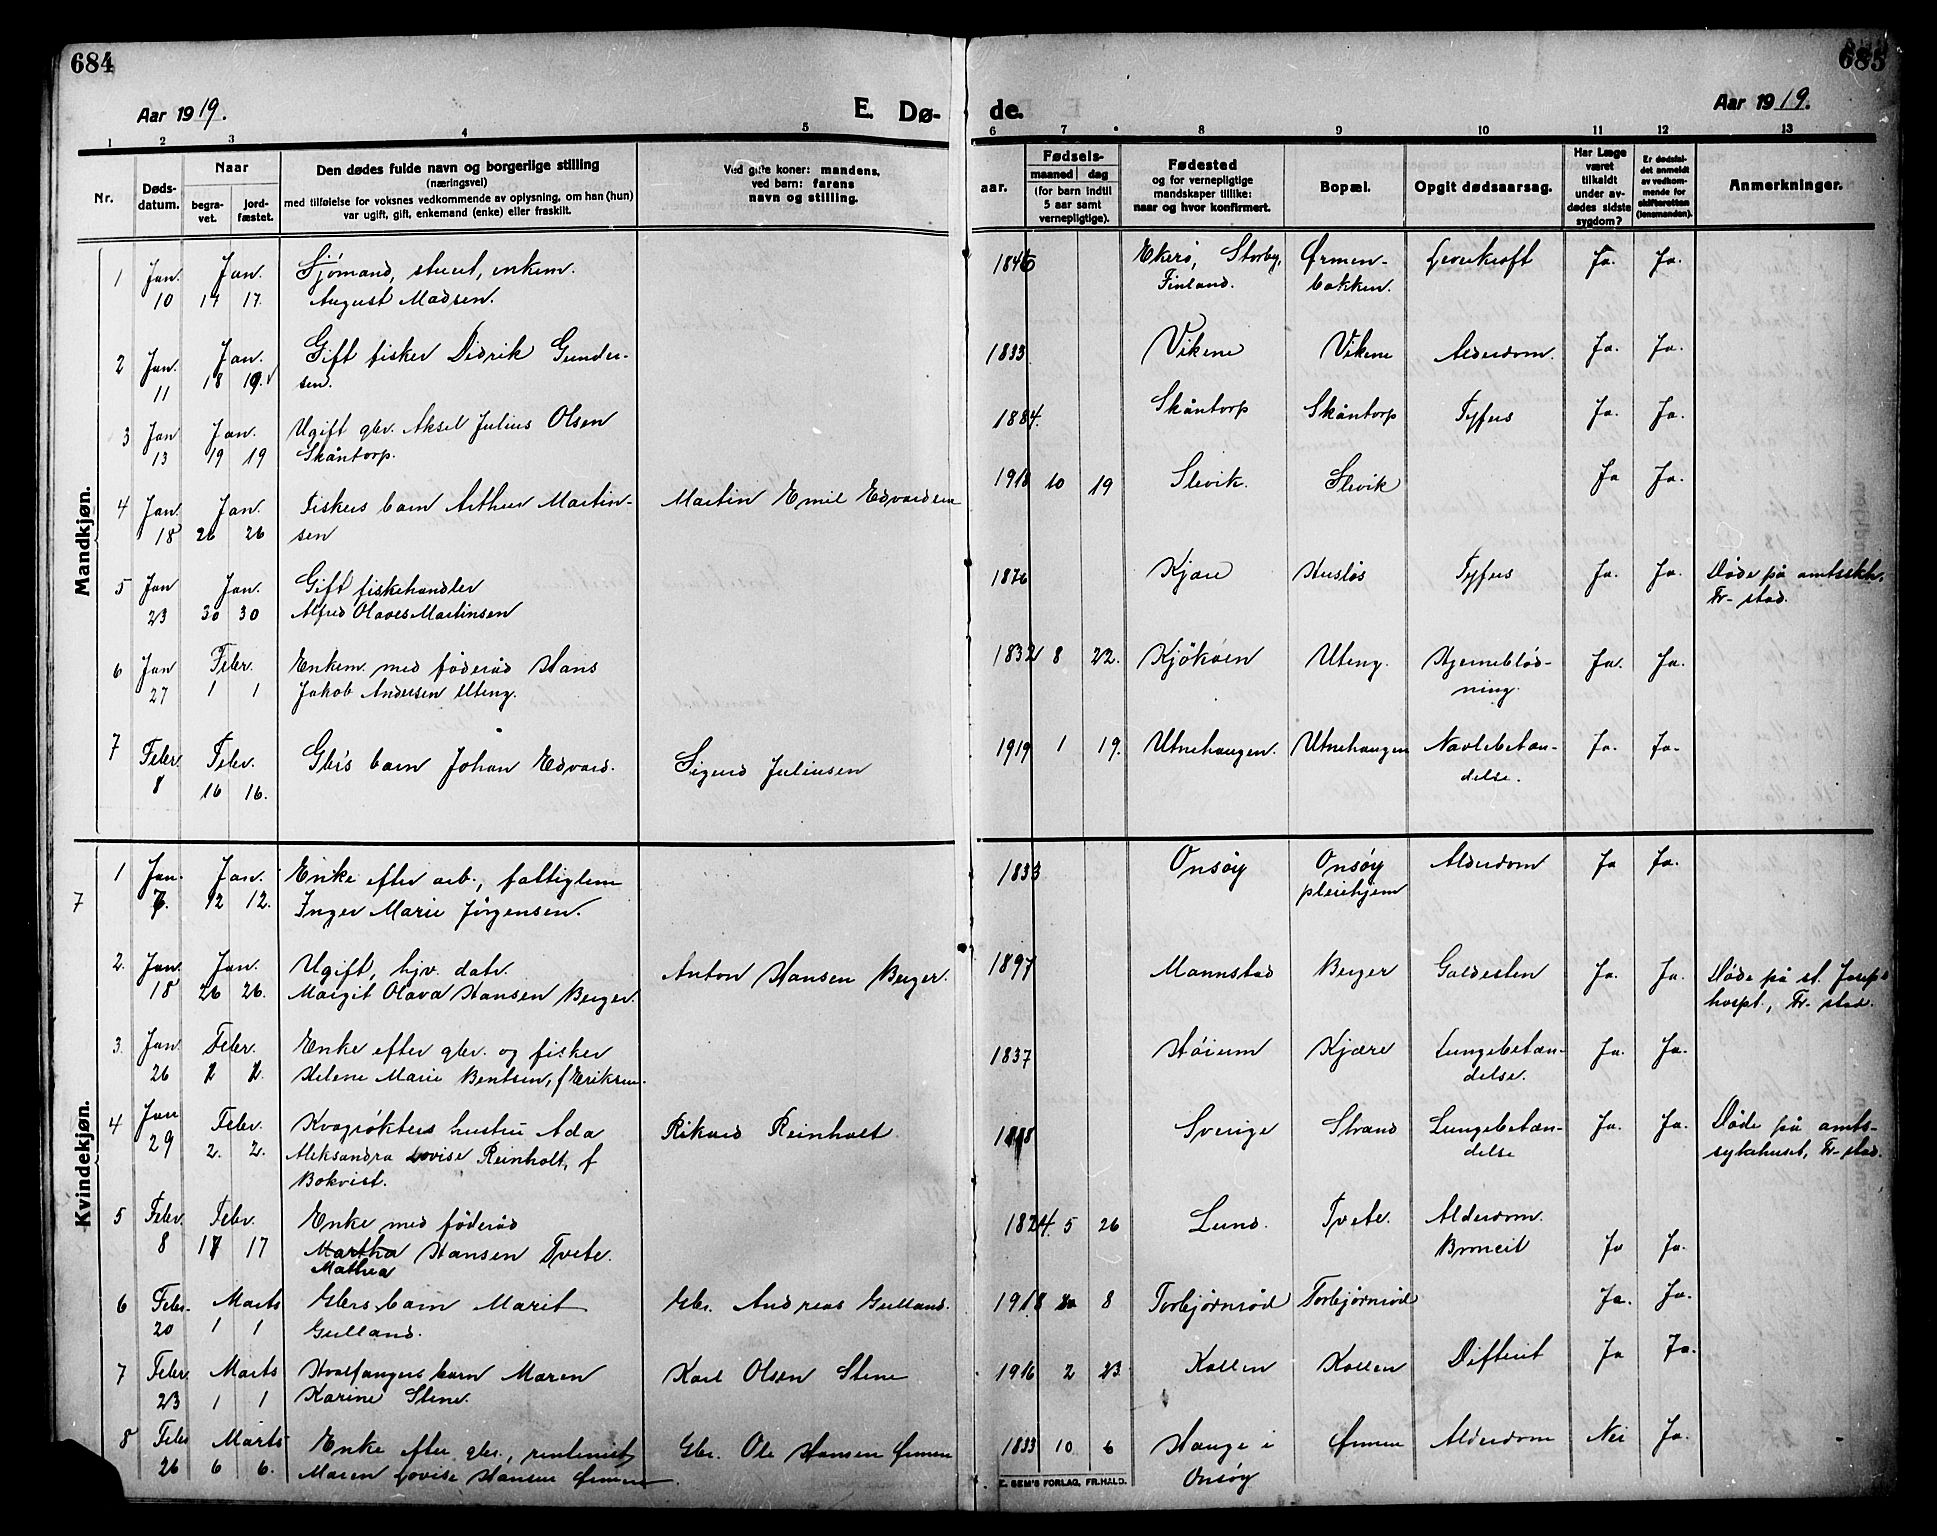 684
685
Aar 1919.
E. Dø-
de.
Aar 1919.
1 2 3 4 5 6 7 8 9 10 11 12 13
Nr.
Døds-
datum.
Naar
begra-
vet.
jord-
fæstet.
Den dødes fulde navn og borgerlige stilling
(næringsvei)
med tilføielse for voksnes vedkommende av oplysning, om han (hun)
var ugift, gift, enkemand (enke) eller fraskilt.
Ved gifte koner: mandens,
ved barn: farens
navn og stilling.
aar.
Fødsels-
maaned dag
(for barn indtil
5 aar samt
vernepligtige).
Fødested
og for vernepligtige
mandskaper tillike:
naar og hvor konfirmert.
Bopæl.
Opgit dødsaarsag.
Har Læge
været
tilkaldt
under av-
dødes sidste
sygdom?
Er dødsfal-
det anmeldt
av vedkom-
mende for
skifteretten
(lensmanden).
Anmerkninger.
Mandkjøn.
1 Jan. Jan. Sjómand, stuert, enkem. 1846 Ekerø, Storby, Ørmen- Leverkræft Ja. Ja.
10 17 17. August Madsen. Finland. bakken.
2 Jan. Jan. Gift fisker Didrik Gunder- 1833 Vikene Vikene Alderdom. Ja. Ja.
11 18 19. sen.
3 Jan Jan. Ugift gbr. Aksel Julius Olsen 1884. Skåntorp Skåntorp Tyfus Ja. Ja.
13 19 19 Skåntorp.
4 Jan Jan. Fiskers barn Arthur Martin- Martin Emil Edvardsen 1918 10 19 Slevik. Slevik Ja Ja.
18 26 26 sen
5 Jan Jan. Gift fiskehandler 1876 Kjære Husløs Tyfus Ja. Ja. Døde på amtssykh.
23 30 30 Alfred Olaves Martinsen Fr-stad.
6 Jan Febr. Enkem. med föderåd Hans 1832 8 22. Kjøkøen Uteng. Hjerneblød- Ja. Ja.
27 1 1 Jakob Andersen Uteng. ning.
7 Febr Febr. Gbr's barn Johan Edvard. Sigurd Juliusen 1919 1 19. Utnehaugen. Utnehaugen Navlebetæn- Ja. Ja.
8 16 16. delse.
Kvindekjøn.
7
1 Jan. Jan. Enke efter arb., fattiglem 1833 Onsøy Onsøy Alderdom Ja Ja.
7. 12 12. Inger Marie Jørgensen. pleiehjem
2. Jan. Jan. Ugift, hjv. datr. Anton Hansen Berger. 1897 Mannstad Berger Galdesten Ja. Ja. Døde på st. Josephs
18 26 26. Margit Olava Hansen Berger. hospt., Fr-stad.
3. Jan Febr. Enke efter gbr. og fisker 1837 Høium Kjære Lungebetæn- Ja. Ja.
26 2 2. Helene Marie Bentsen, f Eriksen. delse.
4 Jan Febr. Kvægrøkters hustru Ada Rikard Reinholt. Sverige Strand Lungebetæn- Ja. Ja. Døde på amts-
29 2. 2. Aleksandra Lovise Reinholt, f delse sykehuset, Fr-stad.
Bokvist.
5 Febr. Febr. Enke med föderåd 1824. 5 26 Lund. Tvete. Alderdom.
8 17 17 Martha Hansen Tvete. Broncit Ja Ja.
Mathea
6 Febr. Marts Gbrs. barn Marit Gbr. Andreas Gulland. 1918 8 Torbjørnrød Torbjørnrød Ja. Ja.
20 1 1 Gulland.
7 Febr Marts Hvalfangers barn Maren Karl Olsen Stene 1916 2 23. Kallen Kallen Difterit Ja Ja.
23 1 1 Karine Stene.
8 Febr Marts Enke efter gbr., rentenist Gbr. Ole Hansen Ørmen 1833 10 6 Hauge i Ørmen Alderdom Nei Ja.
26 6 6. Maren Lovise Hansen Ørmen. Onsøy
E. SEM'S FORLAG, FR.HALD.